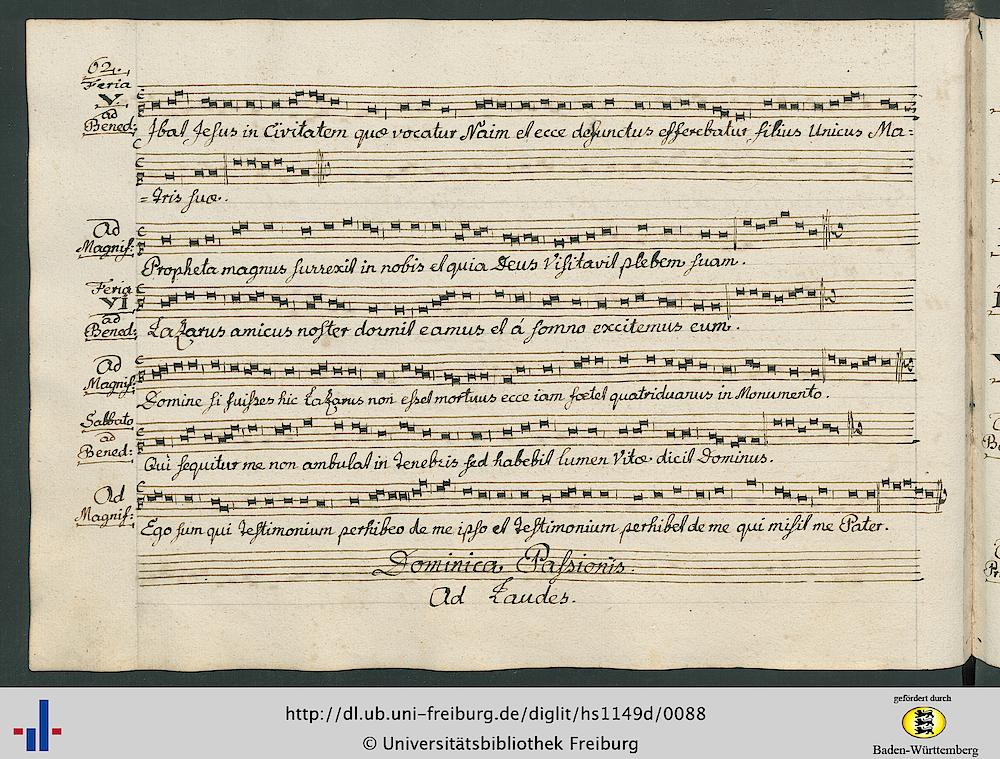 62.
Feria
V.
ad
Bened:
Ibat Jesus in Civitatem quæ vocatur Naim et ecce defunctus efferebatur filius Unicus Ma=
=tris suæ.
Ad
Magnif:
Propheta magnus surrexit in nobis et quia Deus Visitavit plebem suam.
Feria
VI
ad
Bened:
Lazarus amicus noster dormit eamus et á somno excitemus eum.
Ad
Magnif:
Domine si fuisses hic Lazarus non esset mortuus ecce iam foetet quatriduanus in Monumento.
Sabbato
ad
Bened:
Qui sequitur me non ambulat in tenebris sed habebit lumen Vitæ dicit Dominus.
Ad
Magnif:
Ego sum qui testimonium perhibeo de me ipso et testimonium perhibet de me qui misit me Pater.
Dominica Passionis.
Ad Laudes.
http://dl.ub.uni-freiburg.de/diglit/hs1149d/0088
© Universitätsbibliothek Freiburg
gefördert durch
Baden-Württemberg